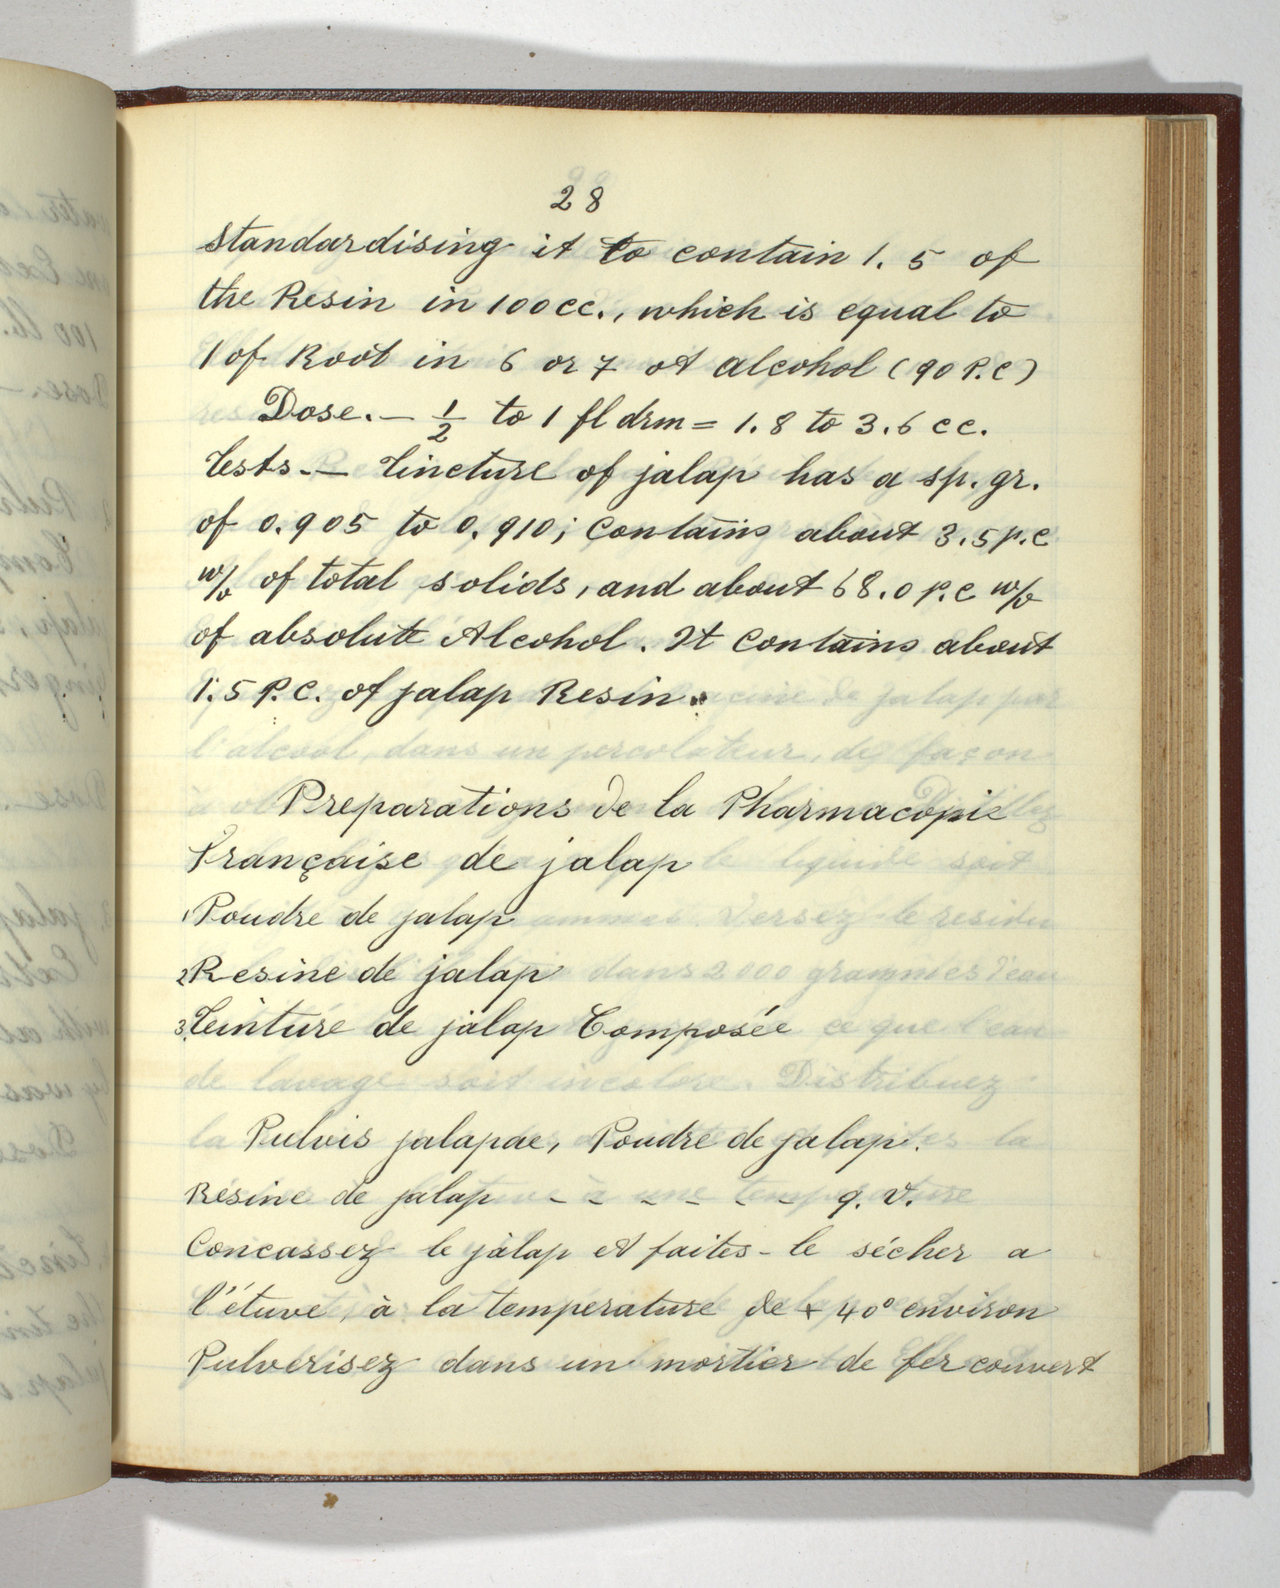 28
standardising it to contain 1.5 of
the Resin in 100 cc., which is equal to
1 of Root in 6 or 7 of alcohol (90 P.C)
Dose. — 1/2 to 1 fl drm = 1.8 to 3.6 cc.
Tests. — Tincture of jalap has a sp. gr.
of 0.905 to 0.910; contains about 3.5 p.c
w/v of total solids, and about 68.0 p.c w/v
of absolute Alcohol. It contains about
1.5 P.C. of jalap Resin.
Preparations de la Pharmacopie
Française de jalap
1 Poudre de jalap
2 Resine de jalap
3. Teinture de jalap Composée
Pulvis jalapae, Poudre de jalap.
Résine de jalap - - - - - - q. v.
Concassez le jalap et faites-le sécher a
l'étuve, à la temperature de + 40° environ
Pulverisez dans un mortier de fer couvert